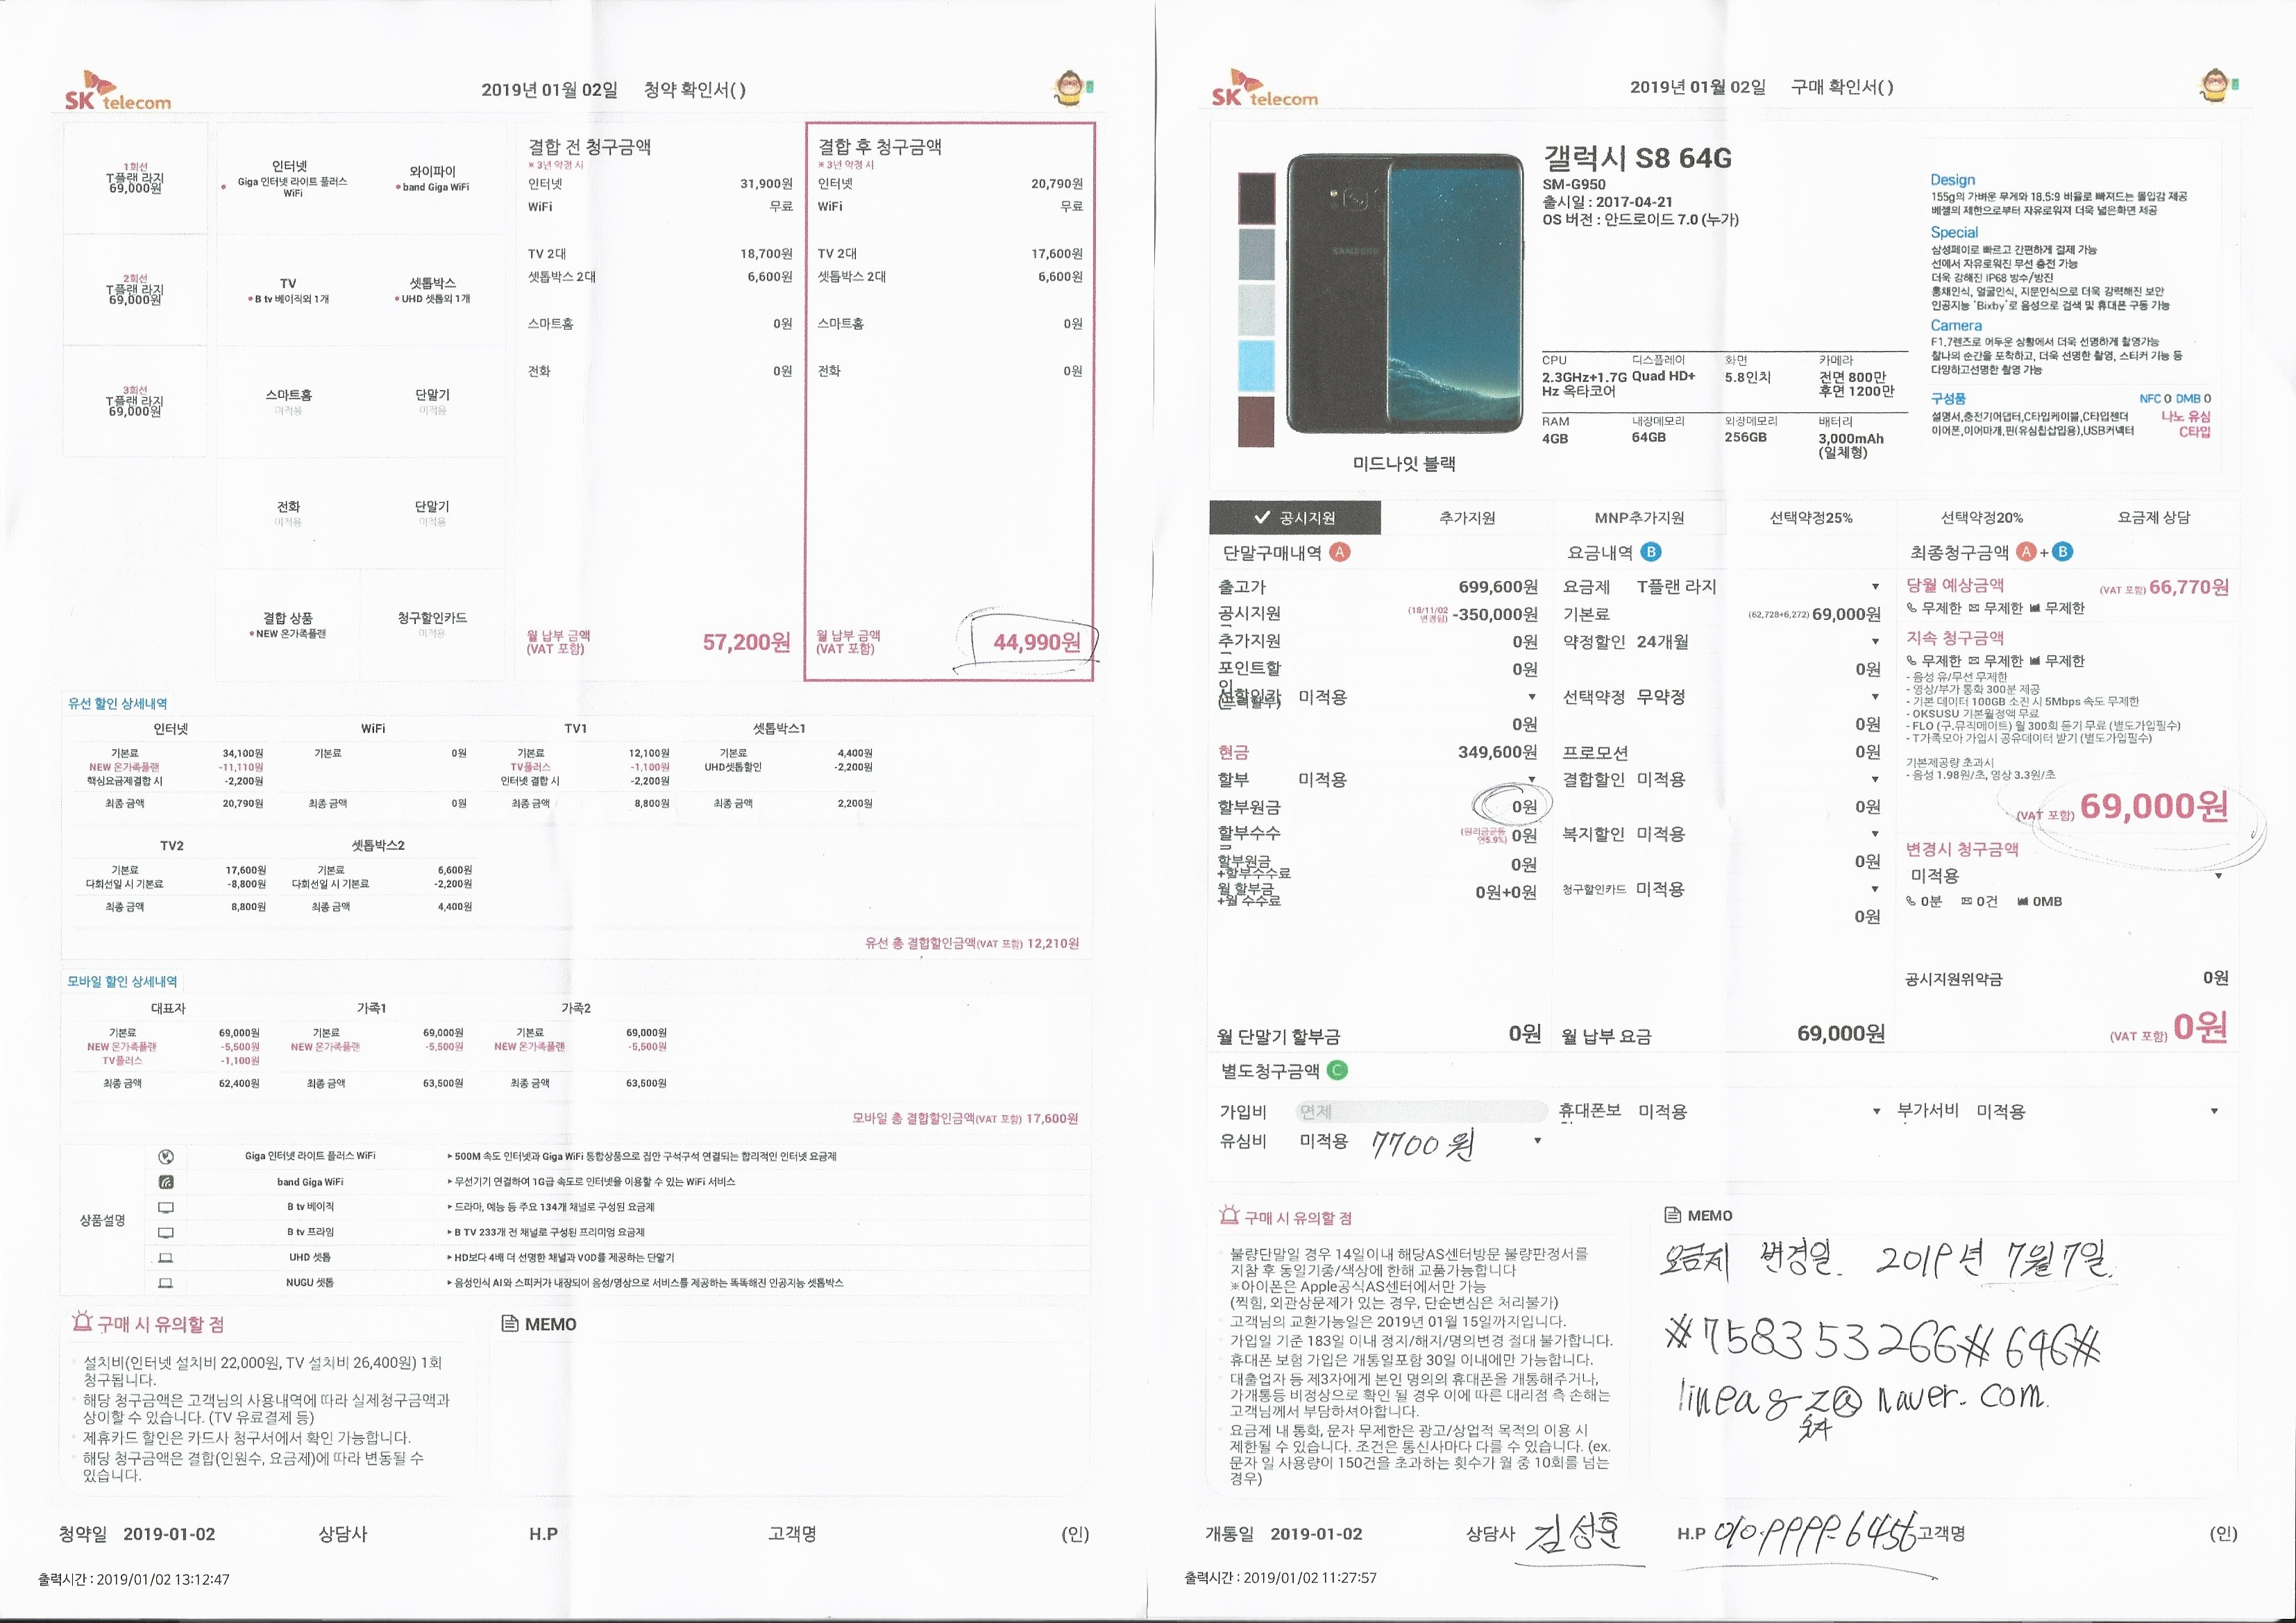 SK telecom
2019년 01월 02일 청약 확인서()
1회선
T플랜 라지
69,000원
인터넷
Giga 인터넷 라이트 플러스
WiFi
와이파이
band Giga WiFi
2회선
T플랜 라지
69,000원
TV
B tv 베이직외 1개
셋톱박스
UHD 셋톱외 1개
3회선
T플랜 라지
69,000원
스마트홈
미적용
단말기
미적용
전화
미적용
단말기
미적용
결합 상품
NEW 온가족플랜
청구할인카드
미적용
결합 전 청구금액
※ 3년 약정 시
인터넷 31,900원
WiFi 무료
TV 2대 18,700원
셋톱박스 2대 6,600원
스마트홈 0원
전화 0원
월 납부 금액
(VAT 포함)
57,200원
결합 후 청구금액
※ 3년 약정 시
인터넷 20,790원
WiFi 무료
TV 2대 17,600원
셋톱박스 2대 6,600원
스마트홈 0원
전화 0원
월 납부 금액
(VAT 포함)
44,990원
유선 할인 상세내역
인터넷
기본료 34,100원
NEW 온가족플랜 -11,110원
핵심요금제결합 시 -2,200원
최종 금액 20,790원
WiFi
기본료 0원
최종 금액 0원
TV1
기본료 12,100원
TV플러스 -1,100원
인터넷 결합 시 -2,200원
최종 금액 8,800원
셋톱박스1
기본료 4,400원
UHD셋톱할인 -2,200원
최종 금액 2,200원
TV2
기본료 17,600원
다회선일 시 기본료 -8,800원
최종 금액 8,800원
셋톱박스2
기본료 6,600원
다회선일 시 기본료 -2,200원
최종 금액 4,400원
유선 총 결합할인금액(VAT 포함) 12,210원
모바일 할인 상세내역
대표자
기본료 69,000원
NEW 온가족플랜 -5,500원
TV플러스 -1,100원
최종 금액 62,400원
가족1
기본료 69,000원
NEW 온가족플랜 -5,500원
최종 금액 63,500원
가족2
기본료 69,000원
NEW 온가족플랜 -5,500원
최종 금액 63,500원
모바일 총 결합할인금액(VAT 포함) 17,600원
상품설명
Giga 인터넷 라이트 플러스 WiFi ▸ 500M 속도 인터넷과 Giga WiFi 통합상품으로 집안 구석구석 연결되는 합리적인 인터넷 요금제
band Giga WiFi ▸ 무선기기 연결하여 1G급 속도로 인터넷을 이용할 수 있는 WiFi 서비스
B tv 베이직 ▸ 드라마, 예능 등 주요 134개 채널로 구성된 요금제
B tv 프라임 ▸ B TV 233개 전 채널로 구성된 프리미엄 요금제
UHD 셋톱 ▸ HD보다 4배 더 선명한 채널과 VOD를 제공하는 단말기
NUGU 셋톱 ▸ 음성인식 AI와 스피커가 내장되어 음성/영상으로 서비스를 제공하는 똑똑해진 인공지능 셋톱박스
구매 시 유의할 점
설치비(인터넷 설치비 22,000원, TV 설치비 26,400원) 1회
청구됩니다.
해당 청구금액은 고객님의 사용내역에 따라 실제청구금액과
상이할 수 있습니다. (TV 유료결제 등)
제휴카드 할인은 카드사 청구서에서 확인 가능합니다.
해당 청구금액은 결합(인원수, 요금제)에 따라 변동될 수
있습니다.
MEMO
청약일 2019-01-02 상담사 H.P 고객명 (인)
출력시간 : 2019/01/02 13:12:47
SK telecom
2019년 01월 02일 구매 확인서()
갤럭시 S8 64G
SM-G950
출시일 : 2017-04-21
OS 버전 : 안드로이드 7.0 (누가)
SAMSUNG
미드나잇 블랙
CPU
2.3GHz+1.7G
Hz 옥타코어
디스플레이
Quad HD+
화면
5.8인치
카메라
전면 800만
후면 1200만
RAM
4GB
내장메모리
64GB
외장메모리
256GB
배터리
3,000mAh
(일체형)
Design
155g의 가벼운 무게와 18.5:9 비율로 빠져드는 몰입감 제공
베젤의 제한으로부터 자유로워져 더욱 넓은화면 제공
Special
삼성페이로 빠르고 간편하게 결제 가능
선에서 자유로워진 무선 충전 가능
더욱 강해진 IP68 방수/방진
홍채인식, 얼굴인식, 지문인식으로 더욱 강력해진 보안
인공지능 'Bixby'로 음성으로 검색 및 휴대폰 구동 가능
Camera
F1.7렌즈로 어두운 상황에서 더욱 선명하게 촬영가능
찰나의 순간을 포착하고, 더욱 선명한 촬영, 스티커 기능 등
다양하고선명한 촬영 가능
구성품 NFC O DMB O
설명서,충전기어댑터,C타입케이블,C타입젠더
이어폰,이어마개,핀(유심칩삽입용),USB커넥터
나노 유심
C타입
공시지원 추가지원 MNP추가지원 선택약정25% 선택약정20% 요금제 상담
단말구매내역 A
출고가 699,600원
공시지원 (18/11/02 변경됨) -350,000원
추가지원 0원
포인트할인 0원
미적용
0원
현금 349,600원
할부 미적용
할부원금 0원
할부수수료 (원리금균등 연5.9%) 0원
할부원금
+할부수수료 0원
월 할부금
+월 수수료 0원+0원
월 단말기 할부금 0원
요금내역 B
요금제 T플랜 라지
기본료 (62,728+6,272) 69,000원
약정할인 24개월
0원
선택약정 무약정
0원
프로모션 0원
결합할인 미적용
0원
복지할인 미적용
0원
청구할인카드 미적용
0원
월 납부 요금 69,000원
최종청구금액 A + B
당월 예상금액 (VAT 포함) 66,770원
무제한 무제한 무제한
지속 청구금액
무제한 무제한 무제한
- 음성 유/무선 무제한
- 영상/부가 통화 300분 제공
- 기본 데이터 100GB 소진 시 5Mbps 속도 무제한
- OKSUSU 기본월정액 무료
- FLO (구.뮤직메이트) 월 300회 듣기 무료 (별도가입필수)
- T가족모아 가입시 공유데이터 받기 (별도가입필수)
기본제공량 초과시
- 음성 1.98원/초, 영상 3.3원/초
(VAT 포함) 69,000원
변경시 청구금액
미적용
0분 0건 0MB
공시지원위약금 0원
(VAT 포함) 0원
별도청구금액 C
가입비 면제 휴대폰보 미적용 부가서비 미적용
유심비 미적용 7700원
구매 시 유의할 점
불량단말일 경우 14일이내 해당AS센터방문 불량판정서를
지참 후 동일기종/색상에 한해 교품가능합니다
※아이폰은 Apple공식AS센터에서만 가능
(찍힘, 외관상문제가 있는 경우, 단순변심은 처리불가)
고객님의 교환가능일은 2019년 01월 15일까지입니다.
가입일 기준 183일 이내 정지/해지/명의변경 절대 불가합니다.
휴대폰 보험 가입은 개통일포함 30일 이내에만 가능합니다.
대출업자 등 제3자에게 본인 명의의 휴대폰을 개통해주거나,
가개통등 비정상으로 확인 될 경우 이에 따른 대리점 측 손해는
고객님께서 부담하셔야합니다.
요금제 내 통화, 문자 무제한은 광고/상업적 목적의 이용 시
제한될 수 있습니다. 조건은 통신사마다 다를 수 있습니다. (ex.
문자 일 사용량이 150건을 초과하는 횟수가 월 중 10회를 넘는
경우)
MEMO
요금제 변경일. 2019년 7월 7일.
#758353266#646#
@ naver. com.
숫자
개통일 2019-01-02 상담사 김성훈 H.P 010.9999.6456 고객명 (인)
출력시간 : 2019/01/02 11:27:57